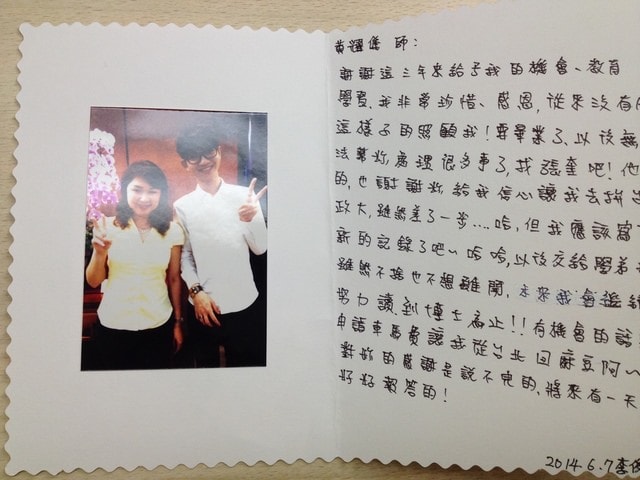 黃耀俊 師:
謝謝這三年來給予我的機會、教育
學費,我非常珍惜、感恩,從來沒有
這樣子的照顧我!要畢業了、以後無
法幫妳處理很多事了,找張奎吧!他
的,也謝謝妳給我信心讓我去拼
政大,雖然差了一步....哈,但我應該寫
新的記錄了吧~哈哈,以後交給學弟
雖然不捨也不想離開,未來我會繼續
努力讀到博士為止!!有機會的話
申請車馬費讓我從台北回麻豆阿~
對妳的感謝是說不完的,將來有一天
好好報答的!
2014.6.7李俊